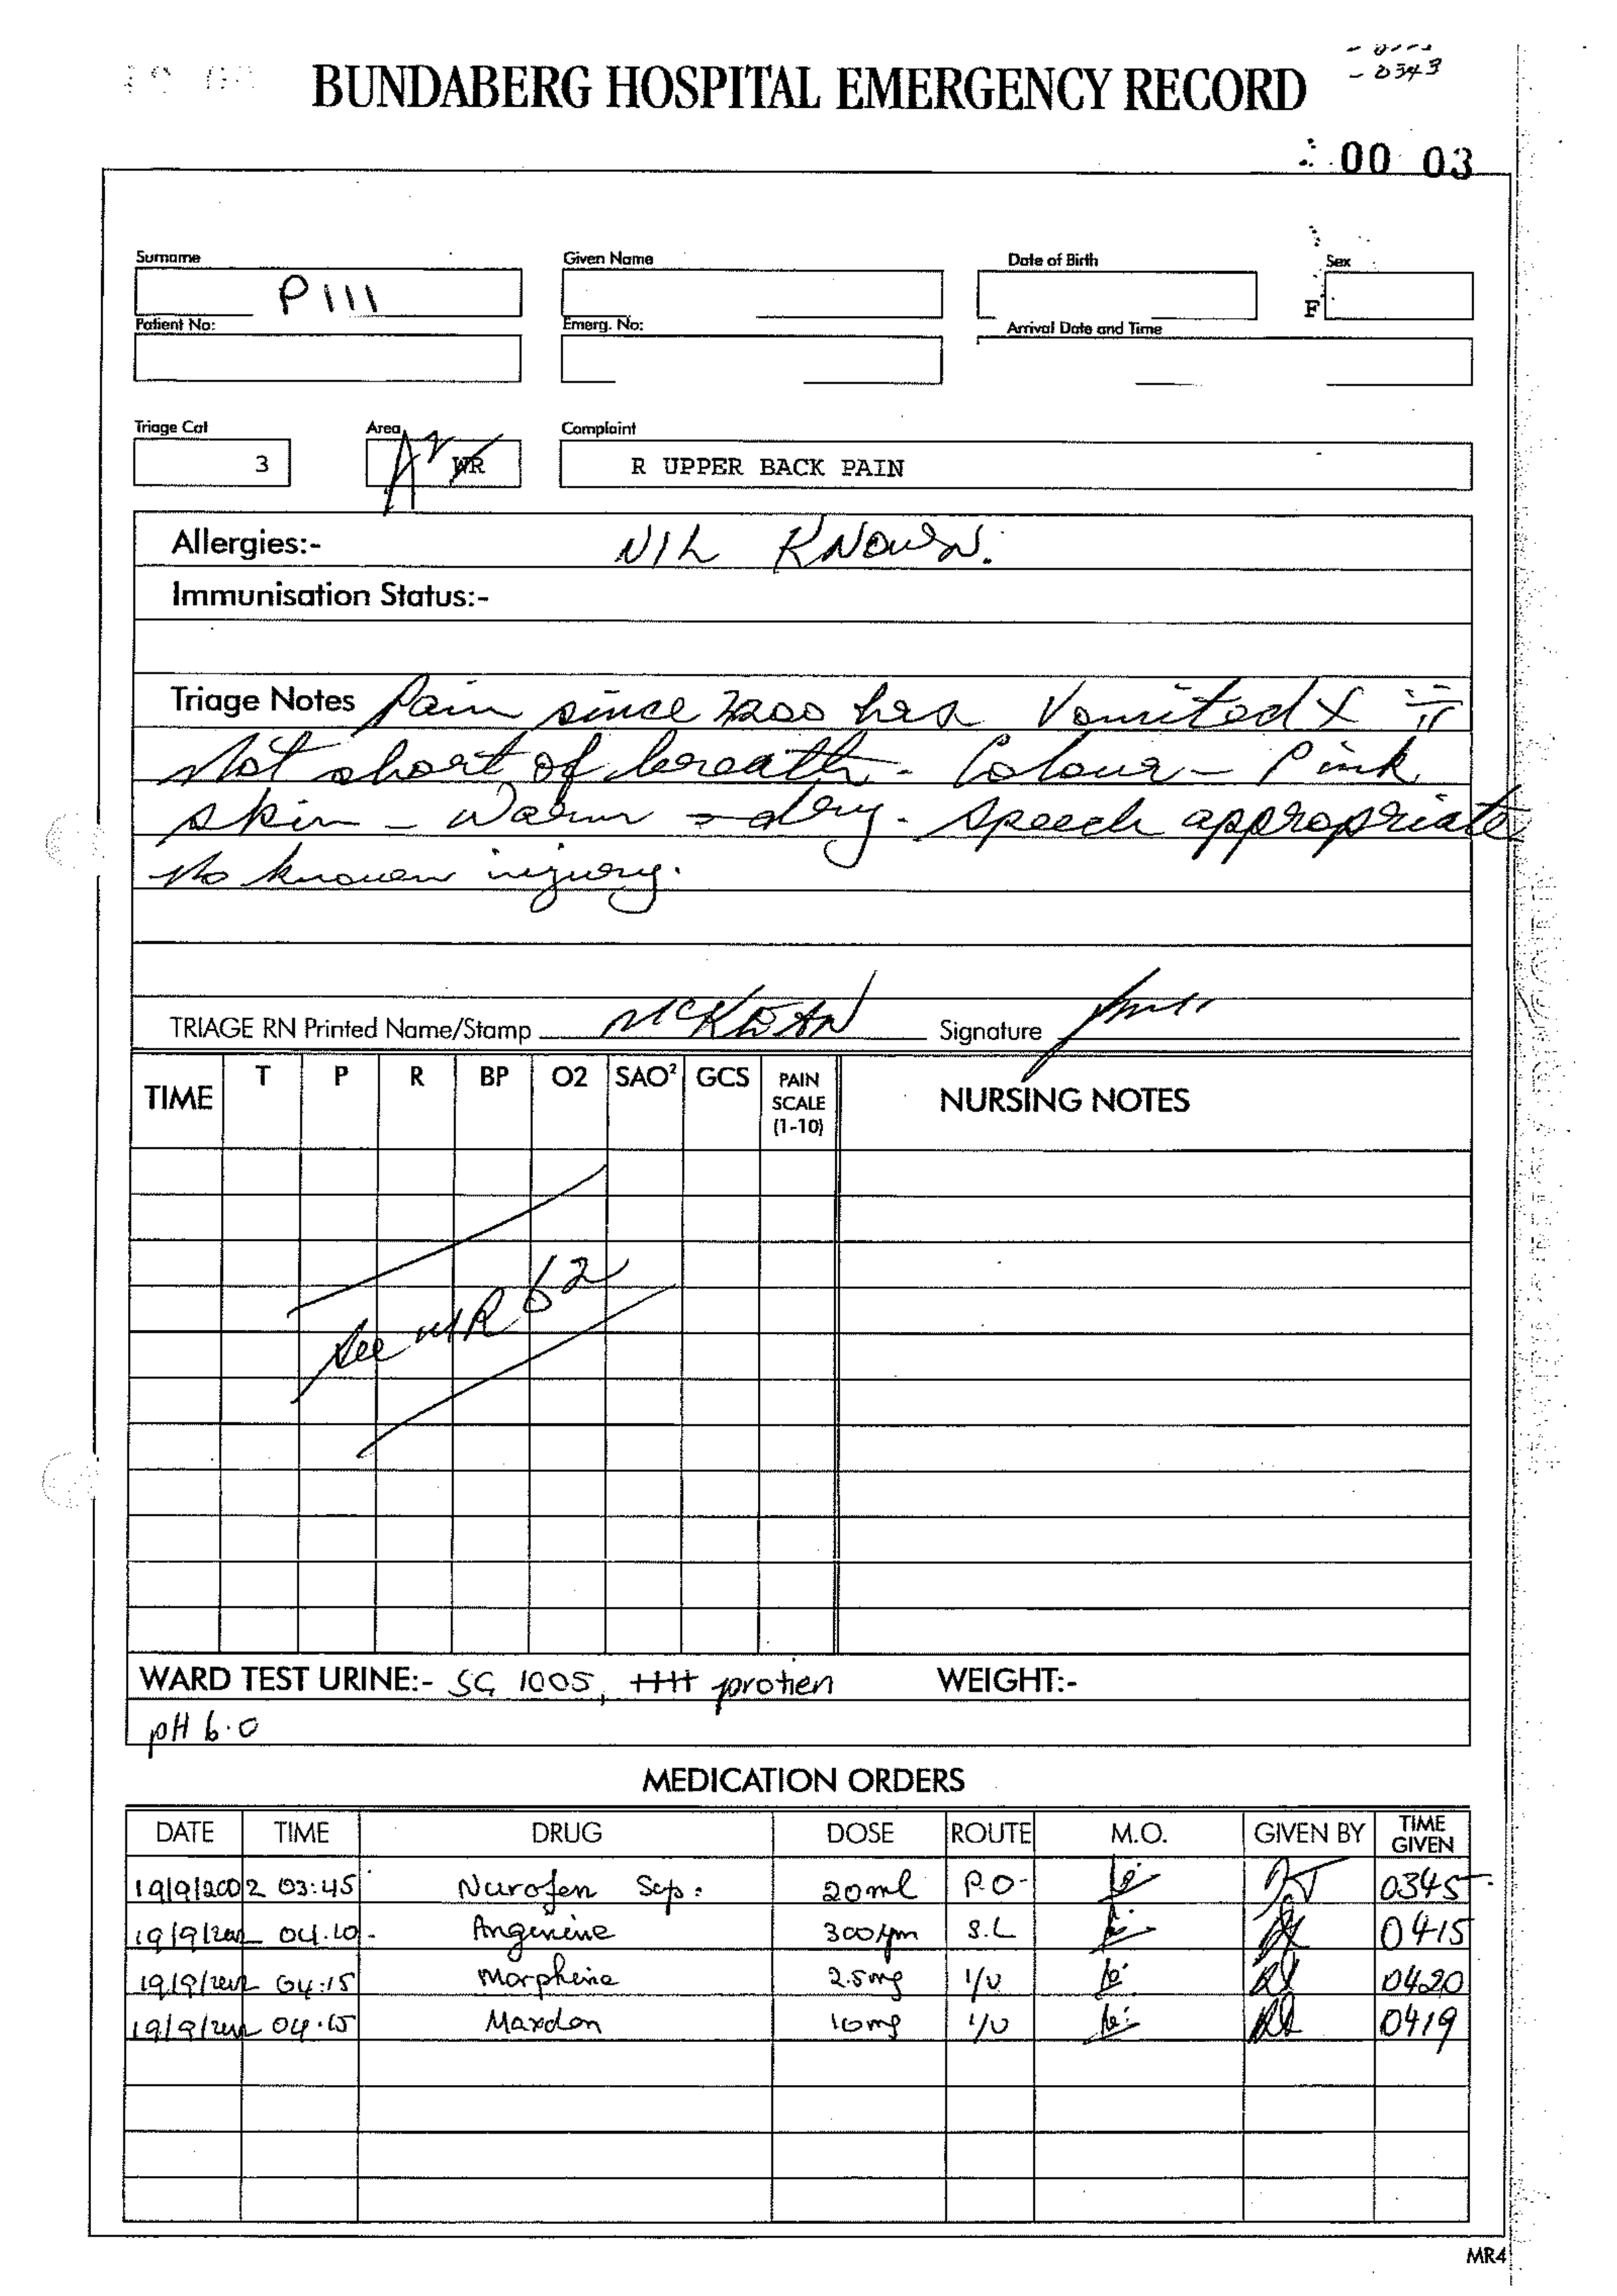 - 0343
BUNDABERG HOSPITAL EMERGENCY RECORD
00 03
Surname Given Name Date of Birth Sex
P111 F
Patient No: Emerg. No: Arrival Date and Time
Triage Cat Area Complaint
3 WR R UPPER BACK PAIN
Allergies:- NIL KNOWN.
Immunisation Status:-
Triage Notes Pain since 2200 has Vomited x ii
Not short of breath - Colour - Pink
skin - Warm - dry. Speech appropriate
No known injury.
TRIAGE RN Printed Name/Stamp Signature
TIME T P R BP O2 SAO² GCS PAIN SCALE (1-10) NURSING NOTES
See MR 62
WARD TEST URINE:- SG 1005, ++++ protien WEIGHT:-
pH 6.0
MEDICATION ORDERS
DATE TIME DRUG DOSE ROUTE M.O. GIVEN BY TIME GIVEN
19/9/2002 03:45 Nurofen Sup: 20ml P.O- 0345
19/9/2002 04.10 Anginine 300 S.L 0415
19/9/2002 04:15 Morphine 2.5mg I/V 0420
19/9/2002 04.15 Maxolon 10mg I/V 0419
MR4